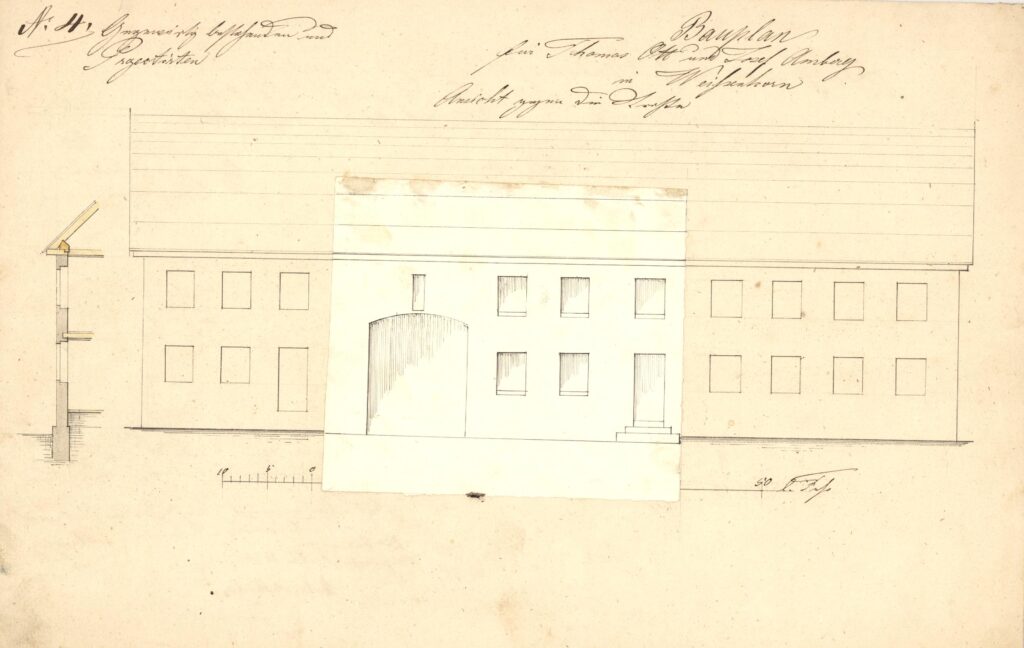 No: 4. Gegenwärtig bestehenden und
Projectirten
Bauplan
für Thomas Ott und Josef Amberg
in Weißenhorn
Ansicht gegen die Straße
10 5 0 50 b. Fuß